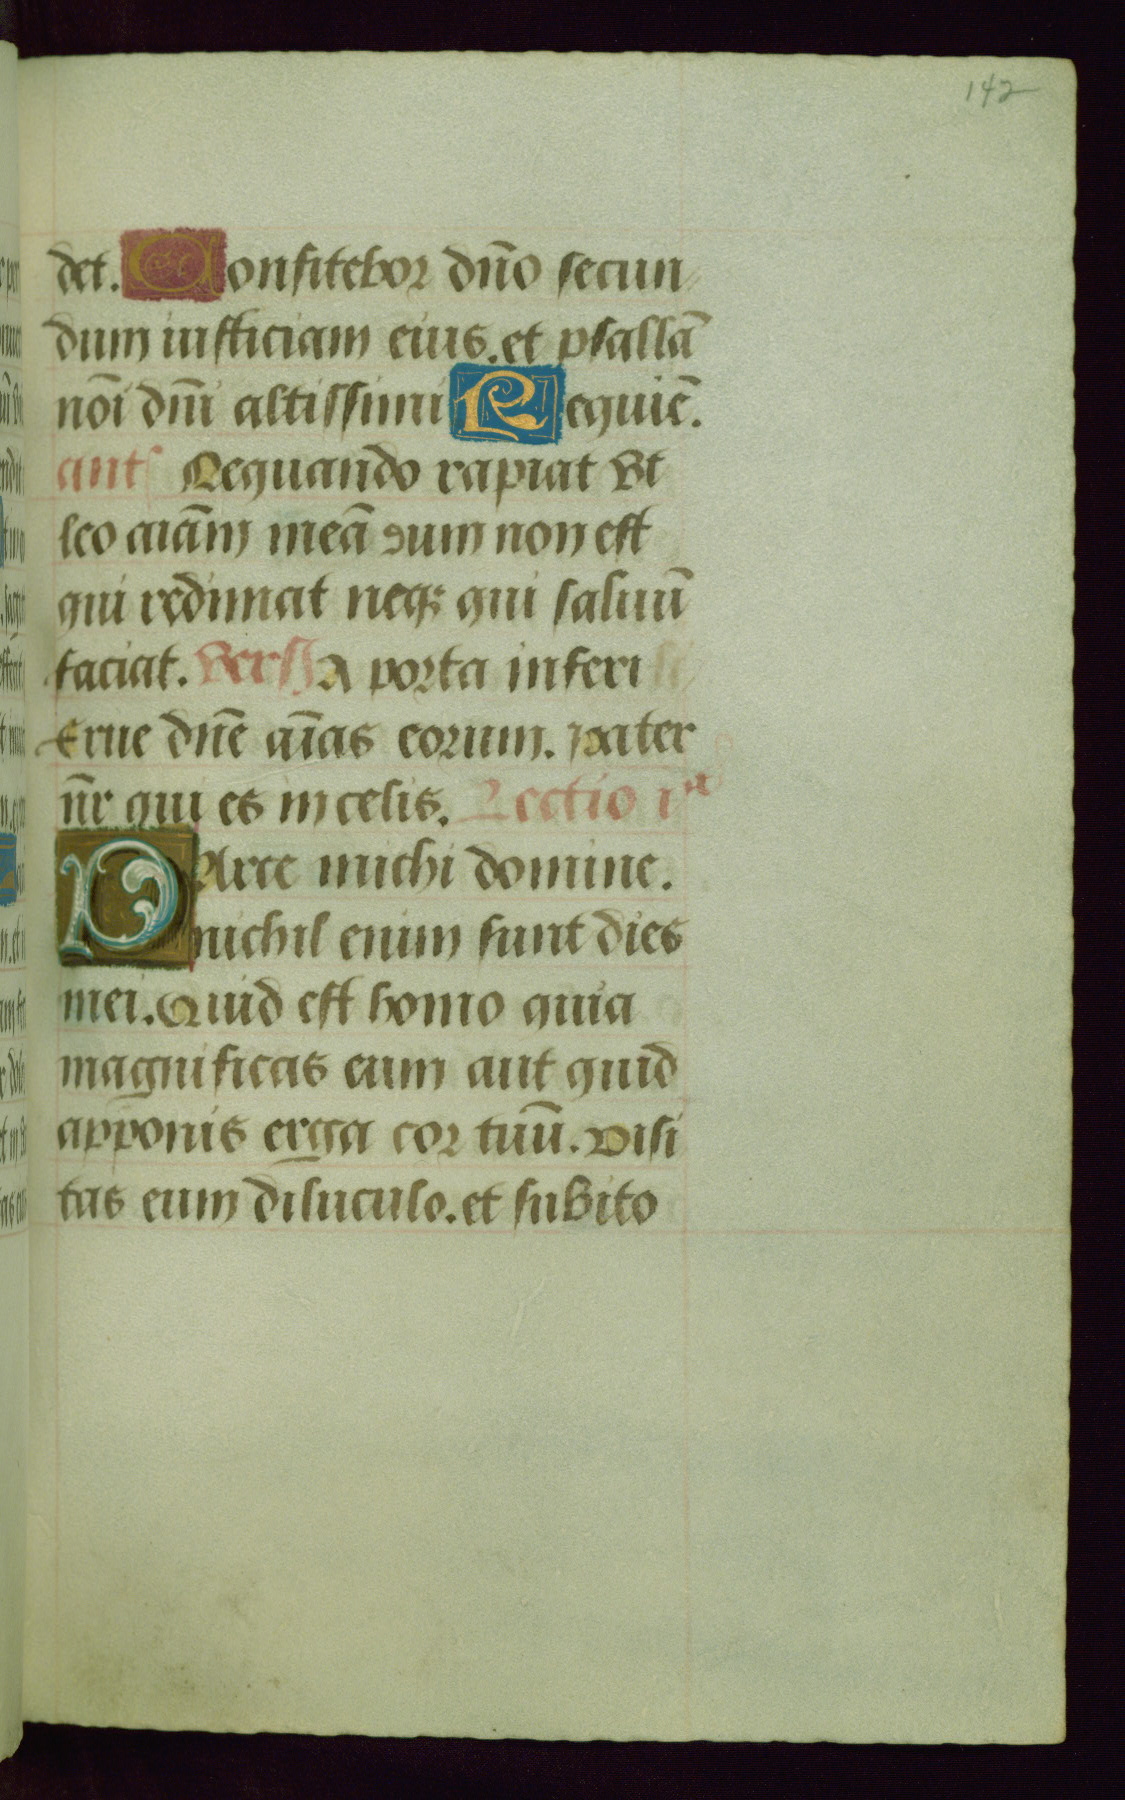 142
det. Confitebor dn̄o secun
dum iusticiam eius. et psallā
nōi dn̄i altissimi Requiē.
ant Nequando rapiat vt
leo aiām meā dum non est
qui redimat neqꝫ qui saluū
faciat. vers A porta inferi
Erue dn̄e aīas eorum. pater
nr̄ qui es in celis. Lectio iᵃ
PArce michi domine.
nichil enim sunt dies
mei. Quid est homo quia
magnificas eum aut quid
apponis erga cor tuū. visi
tas eum diluculo. et subito